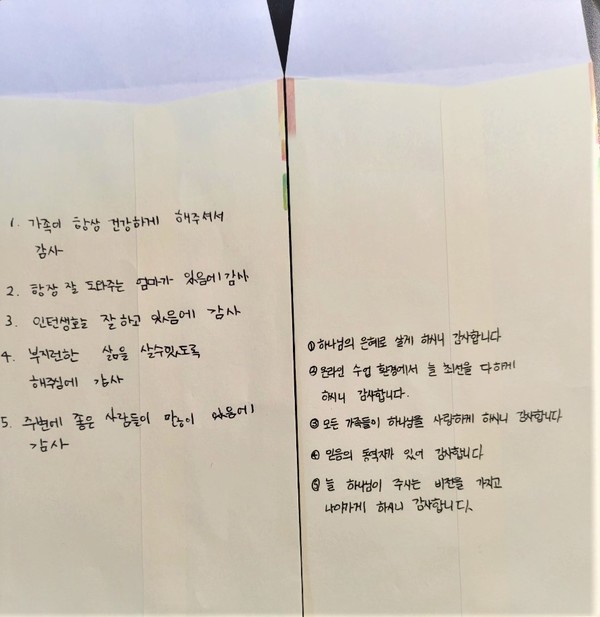 1. 가족이 항상 건강하게 해주셔서
감사
2. 항상 잘 도와주는 엄마가 있음에 감사
3. 인턴생활을 잘 하고 있음에 감사
4. 부지런한 삶을 살수있도록
해주심에 감사
5. 주변에 좋은 사람들이 많이 있음에
감사
① 하나님의 은혜로 살게 하시니 감사합니다
② 온라인 수업 환경에서 늘 최선을 다하게
하시니 감사합니다.
③ 모든 가족들이 하나님을 사랑하게 하시니 감사합니다
④ 믿음의 동역자가 있어 감사합니다
⑤ 늘 하나님이 주시는 비전을 가지고
나아가게 하시니 감사합니다.